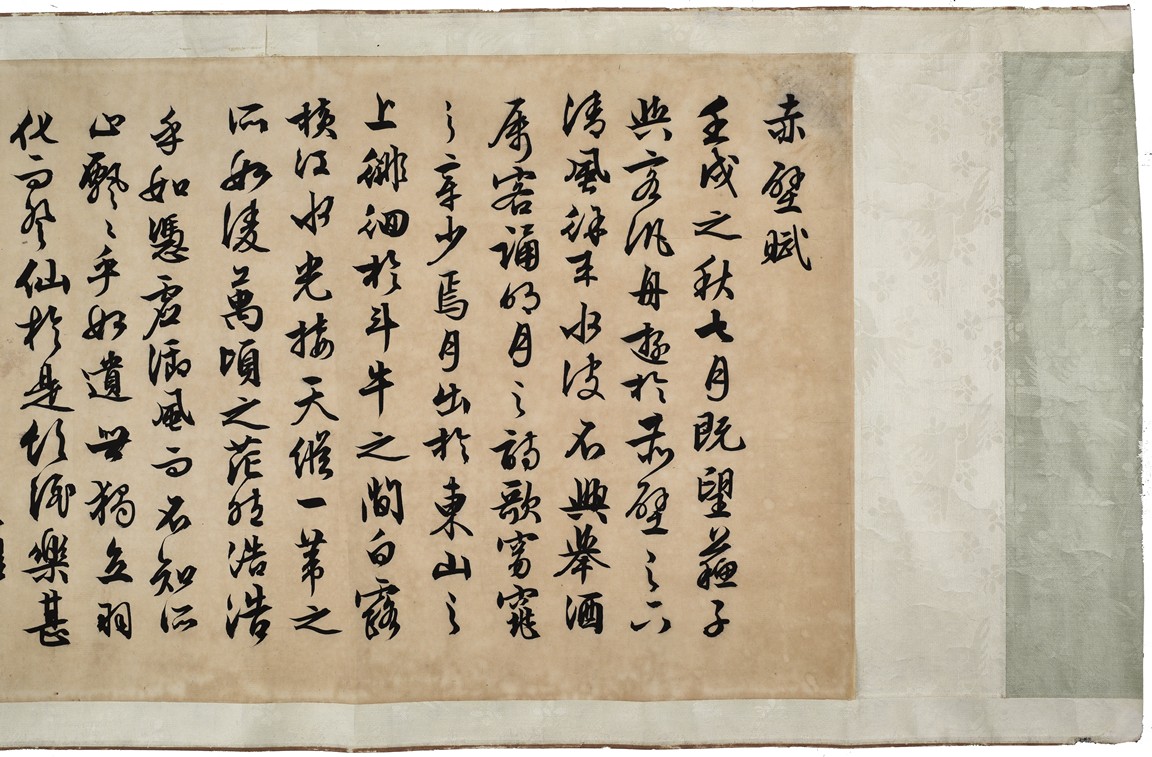 赤壁賦
壬戌之秋七月既望蘇子
與客汎舟遊於赤壁之下
清風徐來水波不興舉酒
屬客誦明月之詩歌窈窕
之章少焉月出於東山之
上徘徊於斗牛之間白露
橫江水光接天縱一葦之
所如凌萬頃之茫然浩浩
乎如憑虛御風而不知所
止飄飄乎如遺世獨立羽
化而登仙於是飲酒樂甚